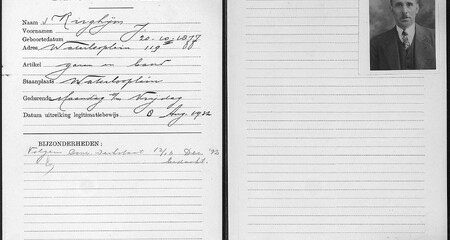 Naam
Voornamen J.
Geboortedatum 20-10-1877
Adres Waterlooplein 119
Artikel garen en band
Staanplaats Waterlooplein
Gedurende Maandag t/m Vrijdag
Datum uitreiking legitimatiebewijs 8 Aug. 1922
BIJZONDERHEDEN:
Volgens 12/12 Dec '32